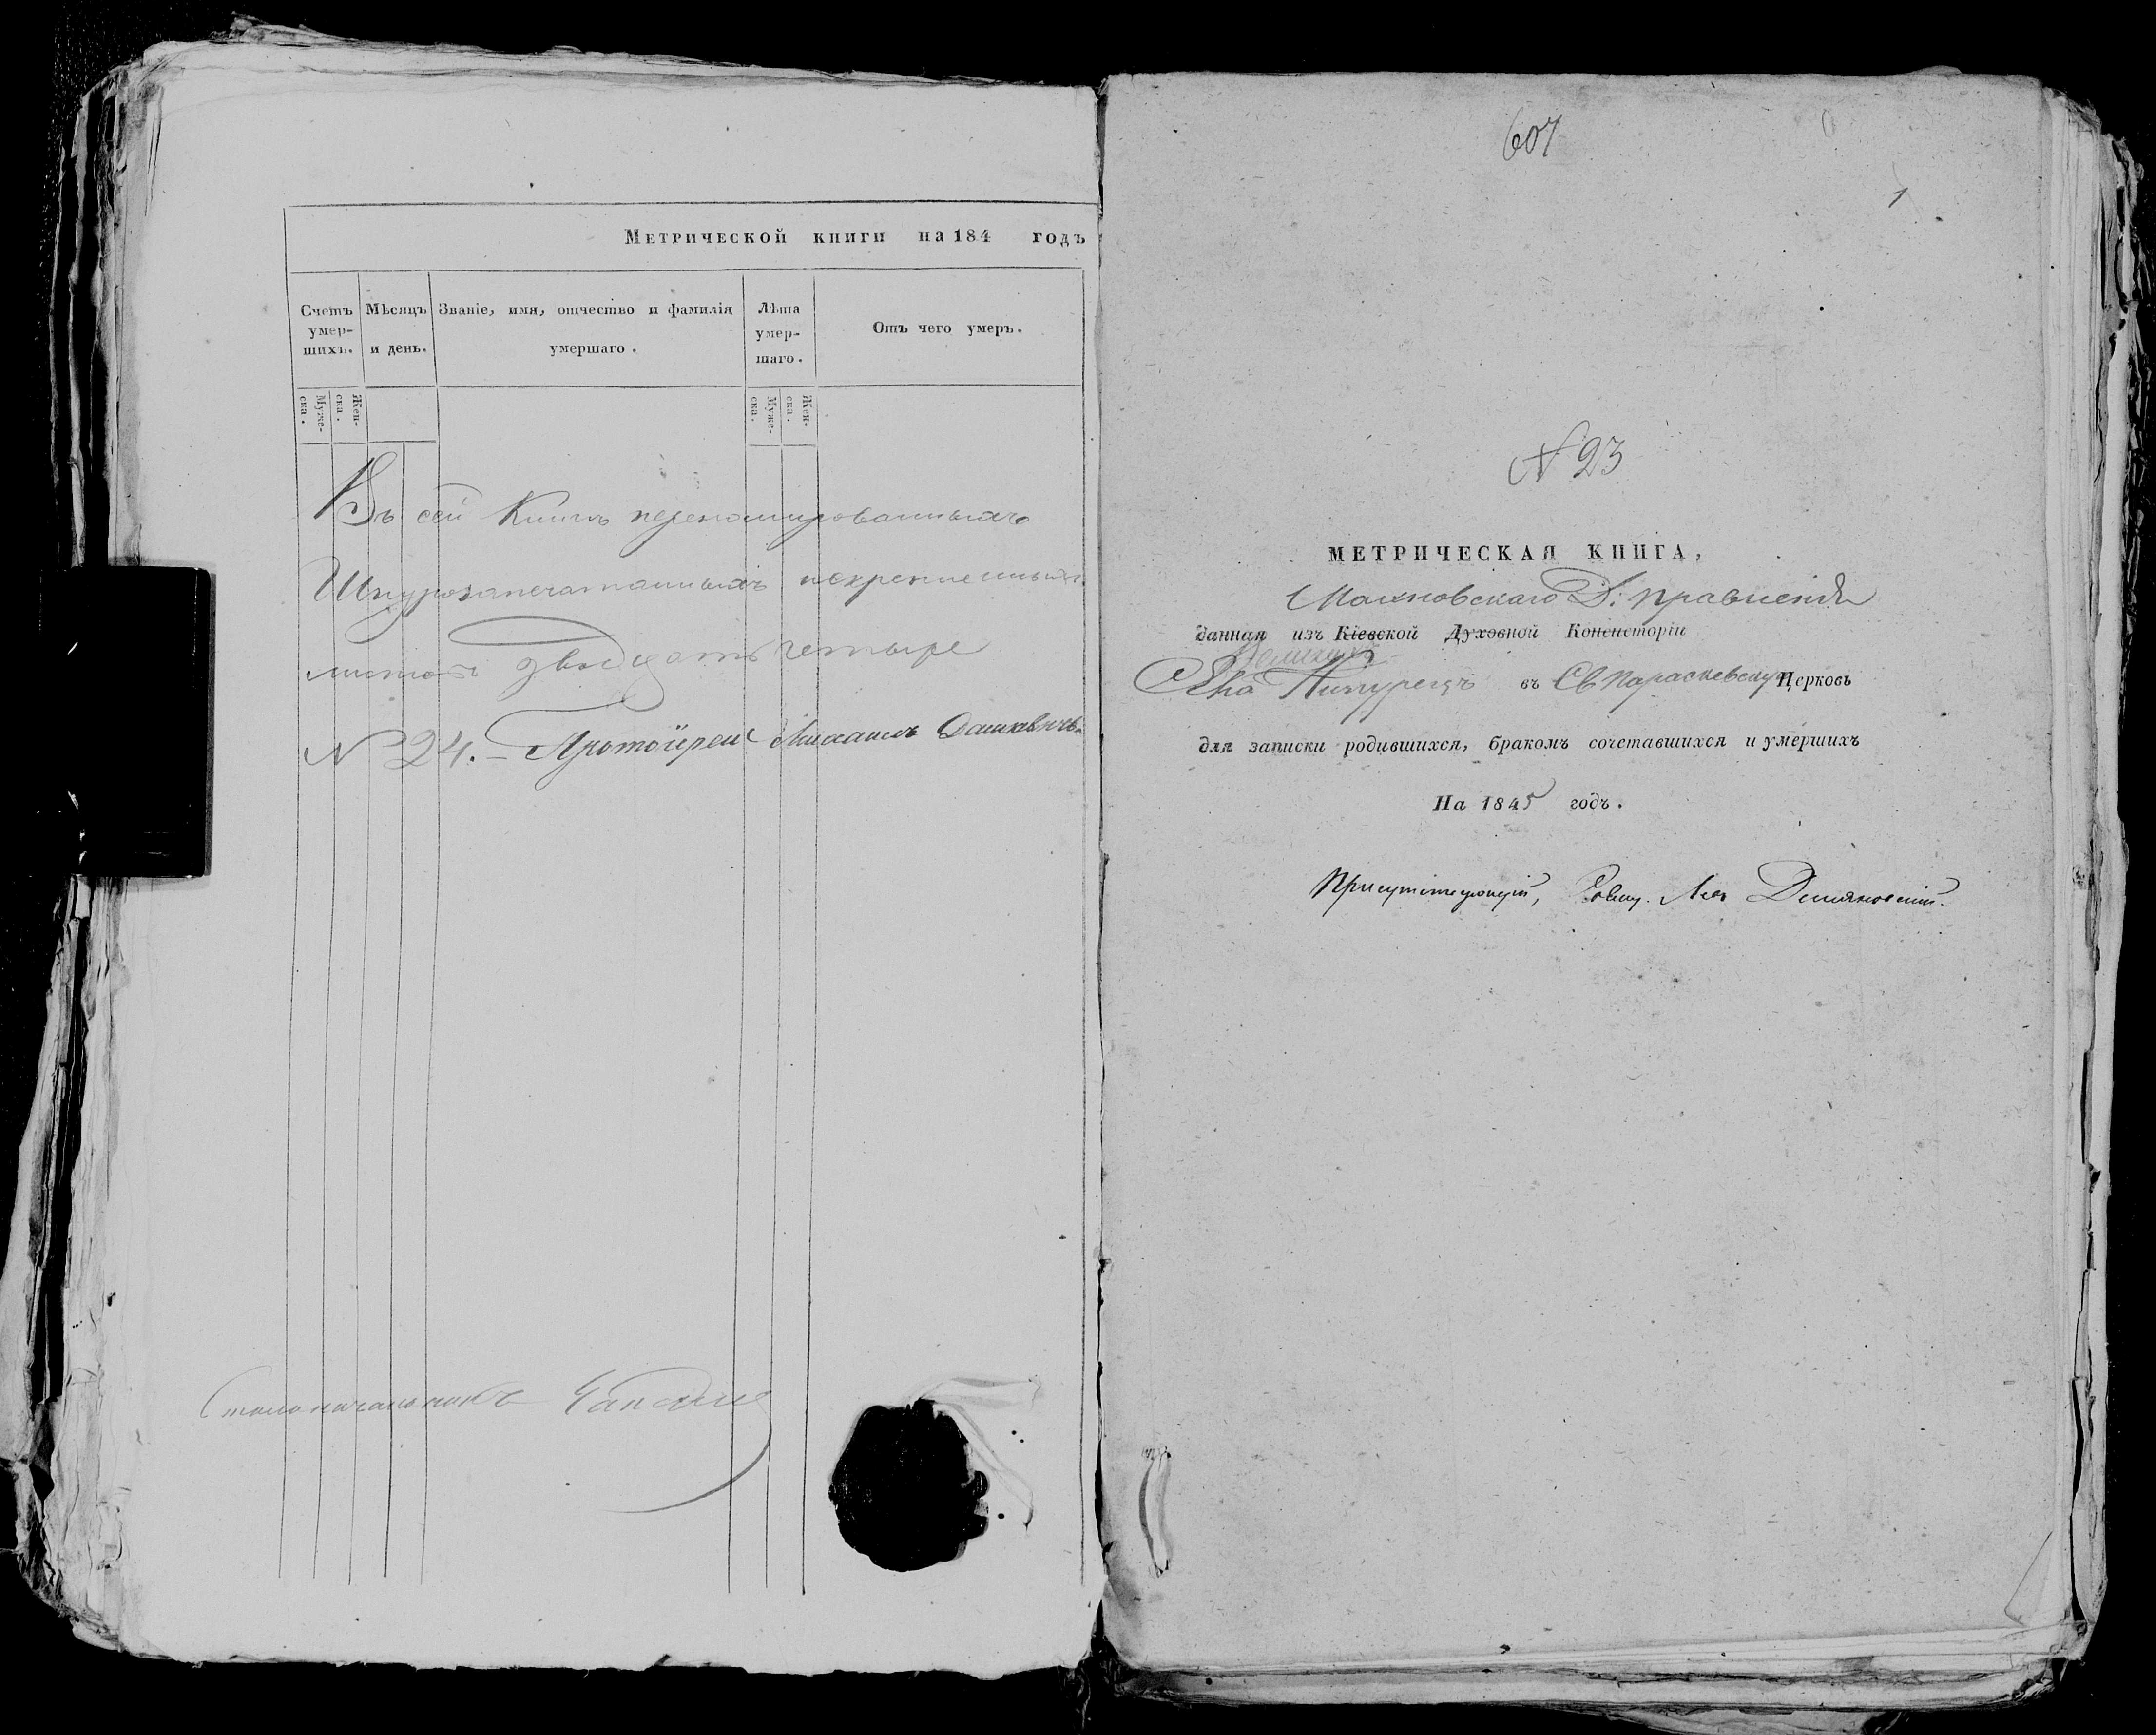 Метрической книги на 184 годъ
Счетъ умер-шихъ.
Мѣсяцъ и день.
Званіе, имя, отчество и фамилія умершаго.
Лѣта умер-шаго.
Отъ чего умеръ.
Муже-ска.
Жен-ска.
Муже-ска.
Жен-ска.
Въ сей Книгѣ переномированныхъ
Шнурозапечатанныхъ искрепленныхъ
листовъ двадцать четыре
№ 24. — Протоіерей Михаилъ Дашкевичъ
Столоначальникъ
607
1
№ 23
МЕТРИЧЕСКАЯ КНИГА,
Махновскаго Д: правленія
данная изъ Кіевской Духовной Консисторіи
Села въ Св Параскевскую Церковь
для записки родившихся, бракомъ сочетавшихся и умершихъ
На 1845 годъ.
Присутствующій, Свящ. Лев